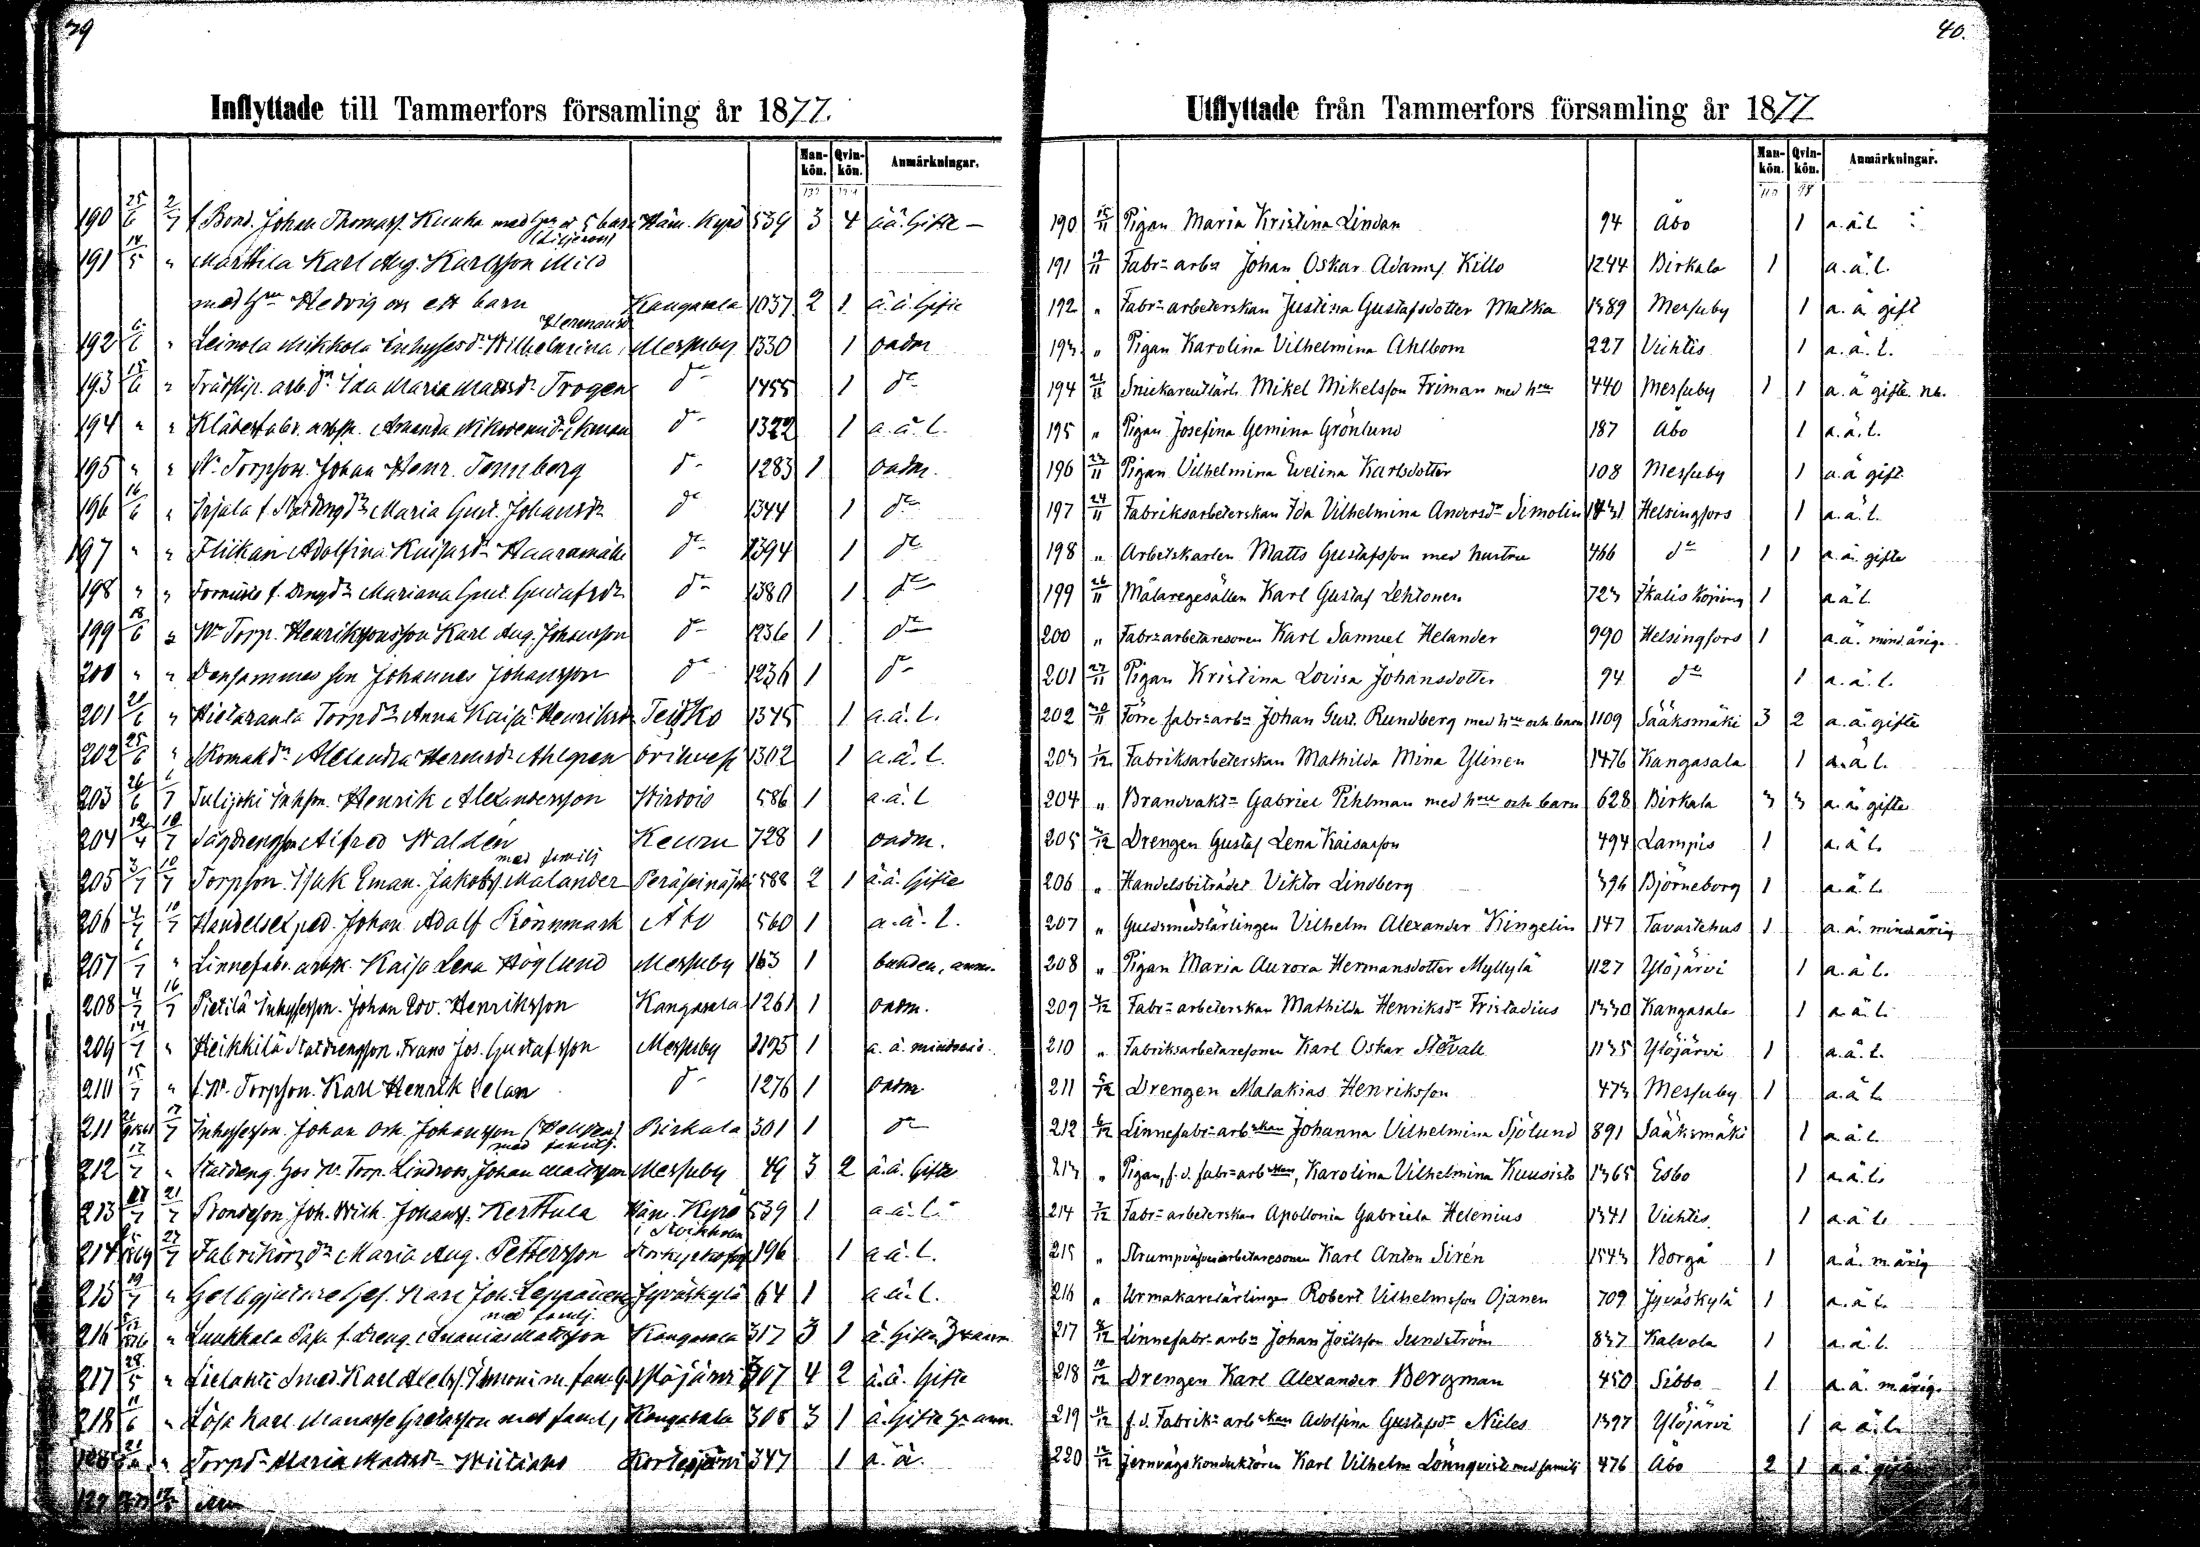 39
Inflyttade till Tammerfors församling år 1877.
Mankön. Qvinkön. Anmärkningar.
190 25/6 2/7 f. Bond. Johan Thomass. Kuuka med hu o 5 barn Häm. Kyrö 539 3 4 a.ä. Gifte
191 14/5 " Marttila Karl Aug. Karlsson Mild
med hu Hedvig ett barn Kangasala 1037 2 1 a.ä. Gifte
192 6/6 " Leinola Mikkola Inhysesdr Wilhelmina Messuby 1330 1 oadm
193 15/6 " arb. dr Ida Maria Mattsdr Trogen do 1455 1 do
194 " " Klädesfabr. arbsk. Amanda Ekman do 1322 1 a.ä.l.
195 " " Torpson Johan Henr. Tennberg do 1283 1 oadm.
196 16/6 " f. Maria Gust. Johansdr do 1344 1 do
197 " " Flickan Adolfina Kaisasdr Haaramäki do 1394 1 do
198 " " f. drengdr Mariana Gust. Gustafsdr do 1380 1 do
199 18/6 " Torp. Henrikssonsson Karl Aug. Johansson do 1236 1 do
200 " " Densammes son Johannes Johansson do 1236 1 do
201 21/6 " Hietaranta Torpdr Anna Kaisa Henriksdr Teisko 1345 1 a.ä.l.
202 25/6 " Skomakdr Alexandra Hermsdr Ahlgren Orihvesi 1302 1 a.ä.l.
203 26/6 6/7 Tulijoki Inhson Henrik Alexandersson Wirdois 586 1 a.ä.l
204 12/4 10/7 Alfred Waldén Keuru 728 1 oadm.
med familj
205 3/7 10/7 Torpson Isak Eman. Jakobss. Malander Peräseinäjoki 588 2 1 a.ä. Gifte
206 4/7 10/7 Handelsexped. Johan Adolf Rönnmark Åbo 560 1 a.ä.l.
207 6/7 " Linnefabr. arbsk. Kajsa Lena Höglund Messuby 163 1
208 4/7 16/7 Pietilä Inhysesson Johan Edv. Henriksson Kangasala 1261 1 oadm.
209 14/7 " Heikkilä Statdrengson Frans Jos. Gustafsson Messuby 1 a.ä.
210 15/7 " f. Torpson Karl Henrik Selan do 1276 1 oadm
211 17/7 Inhysesson Johan Osk. Johansson Birkala 301 1 do
med familj.
212 17/7 " Statdreng hos Torp. Lindroos, Johan Mattsson Messuby 49 3 2 a.ä. Gifte
213 21/7 Bondeson Joh. Wilh. Johanss. Kerttula Häm. Kyrö 539 1 a.ä.l.
214 27/7 Fabrikörsdr Maria Aug. Pettersson 196 1 a.ä.l.
215 19/7 " Gelbgjutare Ges. Karl Joh. Leppänen Jyväskylä 64 1 a.ä.l.
med familj.
216 " Luukkala f. Dreng. Ananias Mattsson Kangasala 317 3 1 ä. Gifte
217 28/5 " Lielahti Smed. Karl m. familj Ylöjärvi 4 2 a.ä. Gifte
218 11/6 " Karl Manasse med familj Kangasala 308 3 1 ä. Gifte
Torpdr Maria Mattsdr Kortesjärvi 347 1 a.ä.
40.
Utflyttade från Tammerfors församling år 1877
Mankön. Qvinkön. Anmärkningar.
190 15/11 Pigan Maria Kristina Lindan 94 Åbo 1 a.ä.l
191 19/11 Fabr=arb= Johan Oskar Adamss. Killo 1244 Birkala 1 a.ä.l.
192 " Fabr=arbeterskan Justina Gustafsdotter Matka 1389 Messuby 1 a.ä gift
193 " Pigan Karolina Vilhelmina Ahlbom 227 Vichtis 1 a.ä.l.
194 21/11 Snickarelärl. Mikel Mikelsson Friman med hu 440 Messuby 1 1 a.ä gifte nb.
195 " Pigan Josefina Gemina Grönlund 187 Åbo 1 a.ä.l.
196 23/11 Pigan Vilhelmina Evelina Karlsdotter 108 Messuby 1 a.ä gift
197 24/11 Fabriksarbeterskan Ida Vilhelmina Andersdr Simolin 1431 Helsingfors 1 a.ä.l.
198 " Arbetskarlen Matts Gustafsson med hustru 466 do 1 1 a.ä. gifte
199 26/11 Målaregesällen Karl Gustaf Lehtonen 723 Ikalis Köping 1 a.ä l.
200 " Fabr=arbetaresonen Karl Samuel Helander 990 Helsingfors 1 a.ä. mindårig.
201 27/11 Pigan Kristina Lovisa Johansdotter 94 do 1 a.ä.l.
202 30/11 Förre fabr=arb= Johan Gust. Rundberg med hu och barn 1109 Sääksmäki 3 2 a.ä. gifte
203 1/12 Fabriksarbeterskan Mathilda Mina Ylinen 1476 Kangasala 1 a.ä l.
204 " Brandvakt= Gabriel Pihlman med hu och barn 628 Birkala 3 3 a.ä. gifte
205 3/12 Drengen Gustaf Lena Kaisasson 494 Lampis 1 a.ä l.
206 " Handelsbiträdet Viktor Lindberg 396 Björneborg 1 a.ä.l.
207 " Guldsmedslärlingen Vilhelm Alexander Kingelin 147 Tavastehus 1 a.ä. mindårig
208 " Pigan Maria Aurora Hermansdotter Myllylä 1127 Ylöjärvi 1 a.ä l.
209 4/12 Fabr=arbeterskan Mathilda Henriksdr Fristadius 1330 Kangasala 1 a.ä.l.
210 " Fabriksarbetaresonen Karl Oskar Stevall 1135 Ylöjärvi 1 a.ä.l.
211 5/12 Drengen Malakias Henriksson 473 Messuby 1 a.ä l.
212 6/12 Linnefabr=arbskan Johanna Vilhelmina Sjölund 891 Sääksmäki 1 a.ä.l.
213 " Pigan, f.d. fabr=arbskan, Karolina Vilhelmina Kuusisto 1365 Esbo 1 a.ä.l.
214 7/12 Fabr=arbeterskan Apollonia Gabriela Helenius 1341 Vichtis 1 a.ä l.
215 " Strumpväfveriarbetaresonen Karl Anton Sirén 1543 Borgå 1 a.ä. m.årig
216 " Urmakarelärlingen Robert Vilhelmsson Ojanen 709 Jyväskylä 1 a.ä l.
217 8/12 Linnefabr=arb= Johan Joelsson Sundström 837 Kalvola 1 a.ä.l.
218 10/12 Drengen Karl Alexander Bergman 450 Sibbo 1 a.ä. m.årig.
219 11/12 f.d. Fabrik=arbskan Adolfina Gustafsdr Nieles 1397 Ylöjärvi 1 a.ä.l.
220 12/12 Jernvägskonduktören Karl Vilhelm Lönnqvist med familj 476 Åbo 2 1 a.ä. gifte